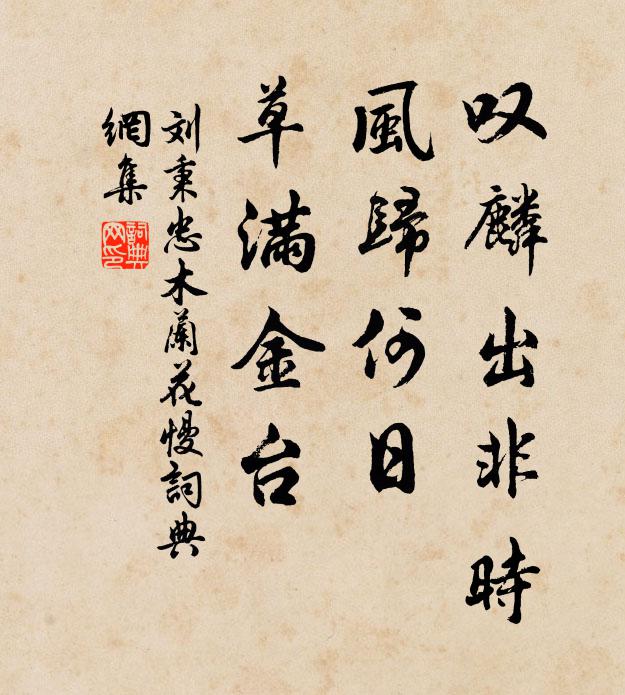 叹麟出非時
風歸何日
草滿金台
刘秉忠木蘭花慢詞典
網集
詞典
网印